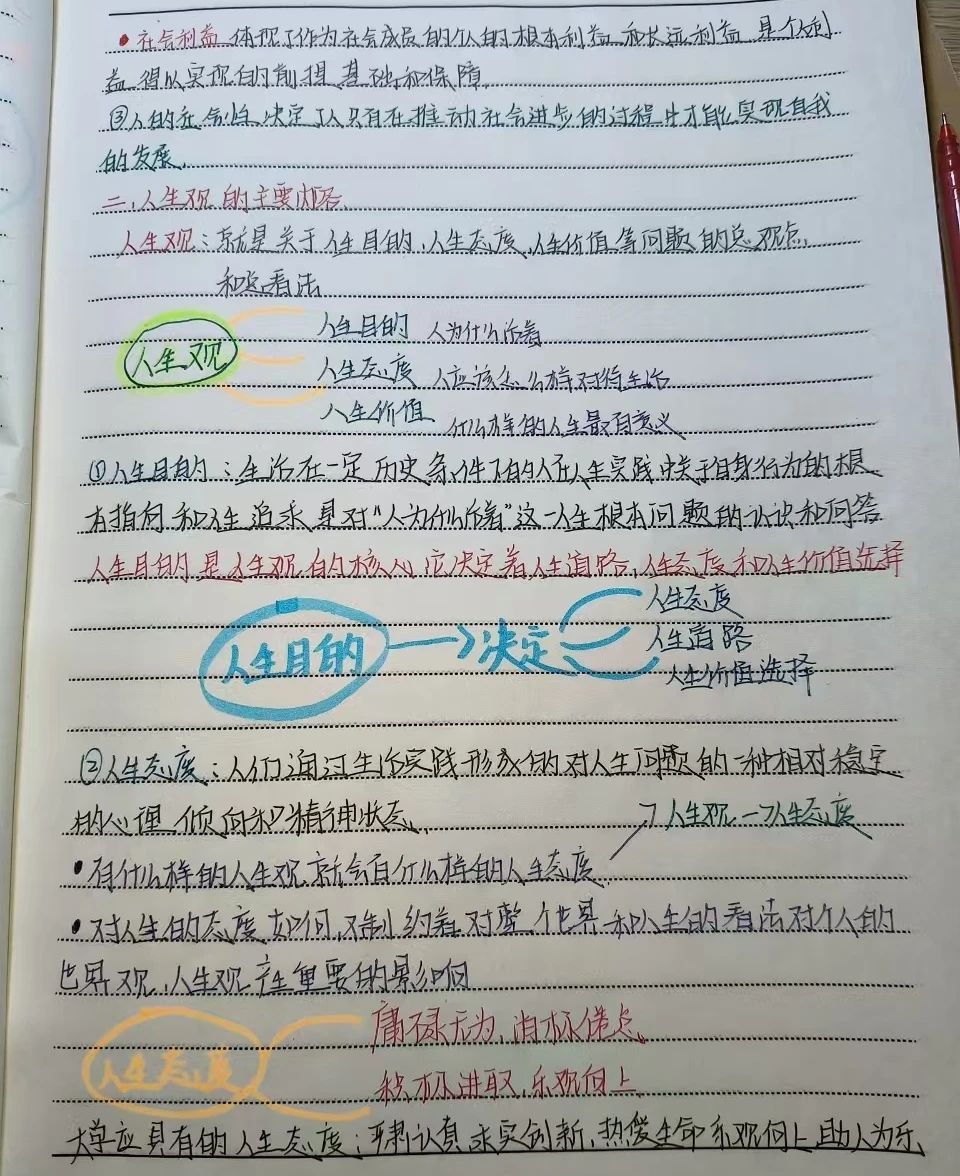 • 社会利益 体现了作为社会成员的个人的根本利益 和长远利益 是个人利
益 得以实现的前提 基础和保障
③人的社会性 决定了人只有在推动社会进步的过程中才能实现自我
的发展.
二、人生观的主要内容.
人生观：就是关于人生目的、人生态度、人生价值等问题的总观点.
和总看法
人生观
人生目的 人为什么活着
人生态度 人应该怎么样对待生活
人生价值 什么样的人生最有意义
①人生目的：生活在一定历史条件下的人在人生实践中关于自身行为的根
本指向和人生追求 是对“人为什么活着”这一人生根本问题的认识和回答
人生目的是人生观的核心 它决定着人生道路、人生态度和人生价值选择
人生目的 → 决定
人生态度
人生道路
人生价值选择
②人生态度：人们通过生活实践形成的对人生问题的一种相对稳定
的心理倾向和精神状态.
→人生观→人生态度
• 有什么样的人生观 就会有什么样的人生态度
• 对人生的态度如何，又制约着对整个世界和人生的看法对个人的
世界观、人生观产生重要的影响
人生态度
庸碌无为、消极倦怠.
积极进取、乐观向上
大学应具有的人生态度：严肃认真 求实创新、热爱生命 乐观向上 助人为乐、